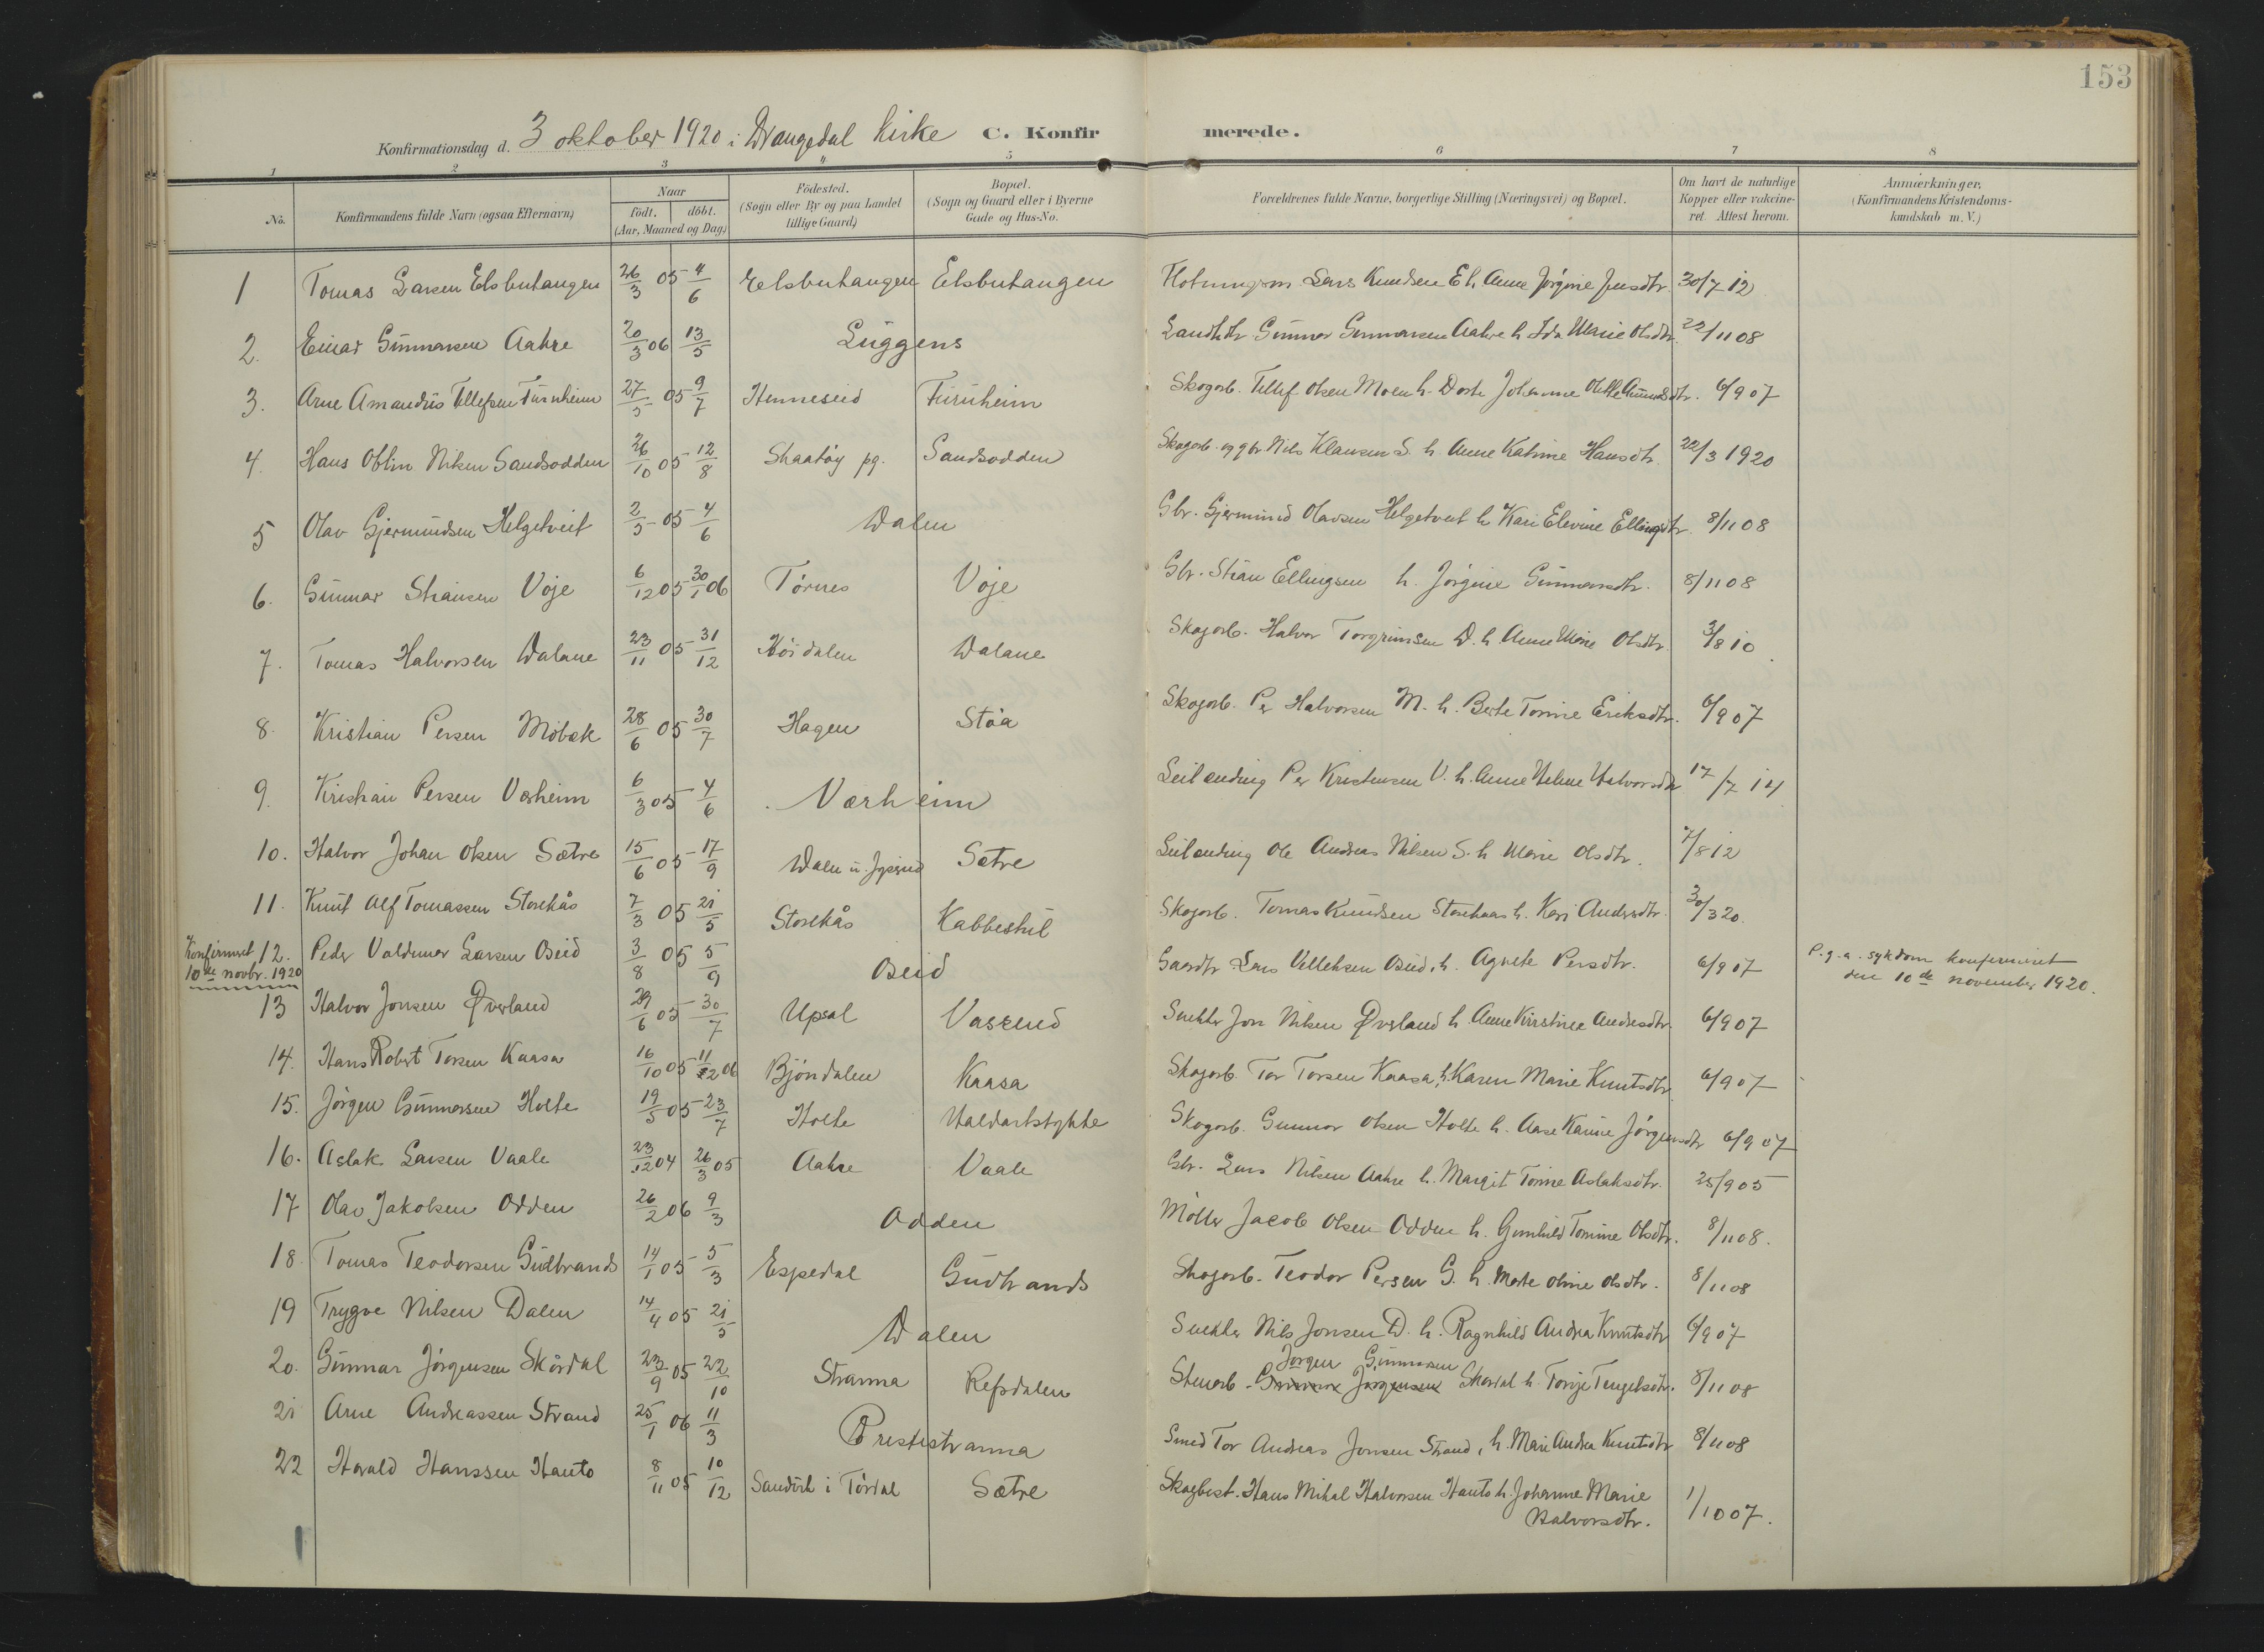 153
Konfirmationsdag d. 3 oktober 1920 i Drangedal kirke C. Konfirmerede.
1 2 3 4 5 6 7 8
No. Konfirmandens fulde Navn (ogsaa Efternavn) Naar födt. döbt. (Aar, Maaned og Dag) Födested. (Sogn eller By og paa Landet tillige Gaard) Bopæl. (Sogn og Gaard eller i Byerne Gade og Hus-No. Forældrenes fulde Navne, borgerlige Stilling (Næringsvei) og Bopæl. Om havt de naturlige Kopper eller vakcineret. Attest herom. Anmærkninger. (Konfirmandens Kristendomskundskab m. V.)
1 Tomas Larsen Elsbutangen 26/3 05 4/6 Elsbutangen Elsbutangen Lars Knudsen E h. Anne Jørgine Jensdtr. 30/7 12
2. Einar Gunnarsen Aahre 20/3 06 13/5 Luggens Gunnar Gunnarsen Aahre h. Ida Marie Olsdtr. 22/11 08
3. Arne Amandus Tellefsen Furuheim 27/5 05 9/7 Henneseid Furuheim Skogarb. Tellef Olsen Moen h. Dorte Johanne 6/9 07
4. Hans Oblin Nilsen Sandsodden 26/10 05 12/8 Skaatøy pg. Sandsodden Skogarb. og gbr. Nils Klausen S. h. Anne Katrine Hansdtr. 22/3 1920
5 Olav Gjermundsen Helgetveit 2/5 05 4/6 Dalen Gbr. Gjermund Olavsen Helgetveit h. Kari Elevine Ellingsdtr. 8/11 08
6. Gunnar Stiansen Voje 6/12 05 30/1 06 Tørnes Voje Gbr. Stian Ellingsen h. Jørgine Gunnarsdtr. 8/11 08
7. Tomas Halvorsen Dalane 23/11 05 31/12 Høidalen Dalane Skogarb. Halvor Torgrimsen D. h. Anne Marie Olsdtr. 3/8 10
8. Kristian Persen Mobæk 28/6 05 30/7 Hagen Støa Skogarb. Per Halvorsen M. h. Berte Tomine Eriksdtr. 6/9 07
9. Kristian Persen Værheim 6/3 05 4/6 Værheim Leilending Per Kristensen V. h. Anne Helene Halvorsdtr 17/7 14
10. Halvor Johan Olsen Sætre 15/6 05 17/9 Dalen u. Sætre Leilending Ole Andreas Nilsen S. h. Marie Olsdtr. 7/8 12
11. Knut Alf Tomassen Storekås 7/3 05 21/5 Storekås Kabbestul Skogarb. Tomas Knudsen Storekaas h. Kari Andersdtr. 30/3 20.
Konfirmert 10de novbr. 1920
12. Peder Valdemar Larsen Oseid 3/8 05 5/9 Oseid Gaardbr Lars Villeksen Oseid, h. Agnete Persdtr. 6/9 07 P.g.a. sykdom konfirmeret
den 10de november 1920.
13 Halvor Jonsen Øverland 29/6 05 30/7 Upsal Vasend Snekker Jon Nilsen Øverland h. Anne Kirstine Andersdtr. 6/9 07
14. Hans Robert Torsen Kaasa 16/10 05 11/2 06 Bjøndalen Kaasa Skogarb. Tor Torsen Kaasa, h. Karen Marie Knutsdtr 6/9 07
15. Jørgen Gunnarsen Holte 19/5 05 23/7 Holte Haldarkstykke Skogarb. Gunnar Olsen Holte h. Aase Karine Jørgensdtr 6/9 07
16. Aslak Larsen Vaale 23/12 04 26/3 05 Aahre Vaale Gbr. Lars Nilsen Aahre h. Margit Tomine Aslaksdtr. 25/9 05
17 Olav Jakobsen Odden 26/2 06 9/3 Odden Møller Jacob Olsen Odden h. Gunhild Tomine Olsdtr. 8/11 08.
18. Tomas Teodorsen Gudbrands 14/1 05 5/3 Espedal Gudbrands Skogarb. Teodor Persen G. h. Marte Oline Olsdtr. 8/11 08
19 Trygve Nilsen Dalen 14/4 05 21/5 Dalen Snekker Nils Jonsen D. h. Ragnhild Andrea Knutsdtr 6/9 07
20. Gunnar Jørgensen Skårdal 23/9 05 22/10 Stranna Refsdalen Stenarb. Gunnar Jørgensen Jørgen Gunnarsen Skardal h. Torije Tengelsdtr. 8/11 08
21 Arne Andreassen Strand 25/1 06 11/3 Prestestranna Smed Tor Andreas Jonsen Strand, h. Mari Andrea Knutsdtr 8/11 08
22 Harald Hanssen Hauto 8/11 05 10/12 Sandvik i Tørdal Sætre Skogbest. Hans Mikal Halvorsen Hauto h. Johanne Marie
Halvorsdtr. 1/10 07.